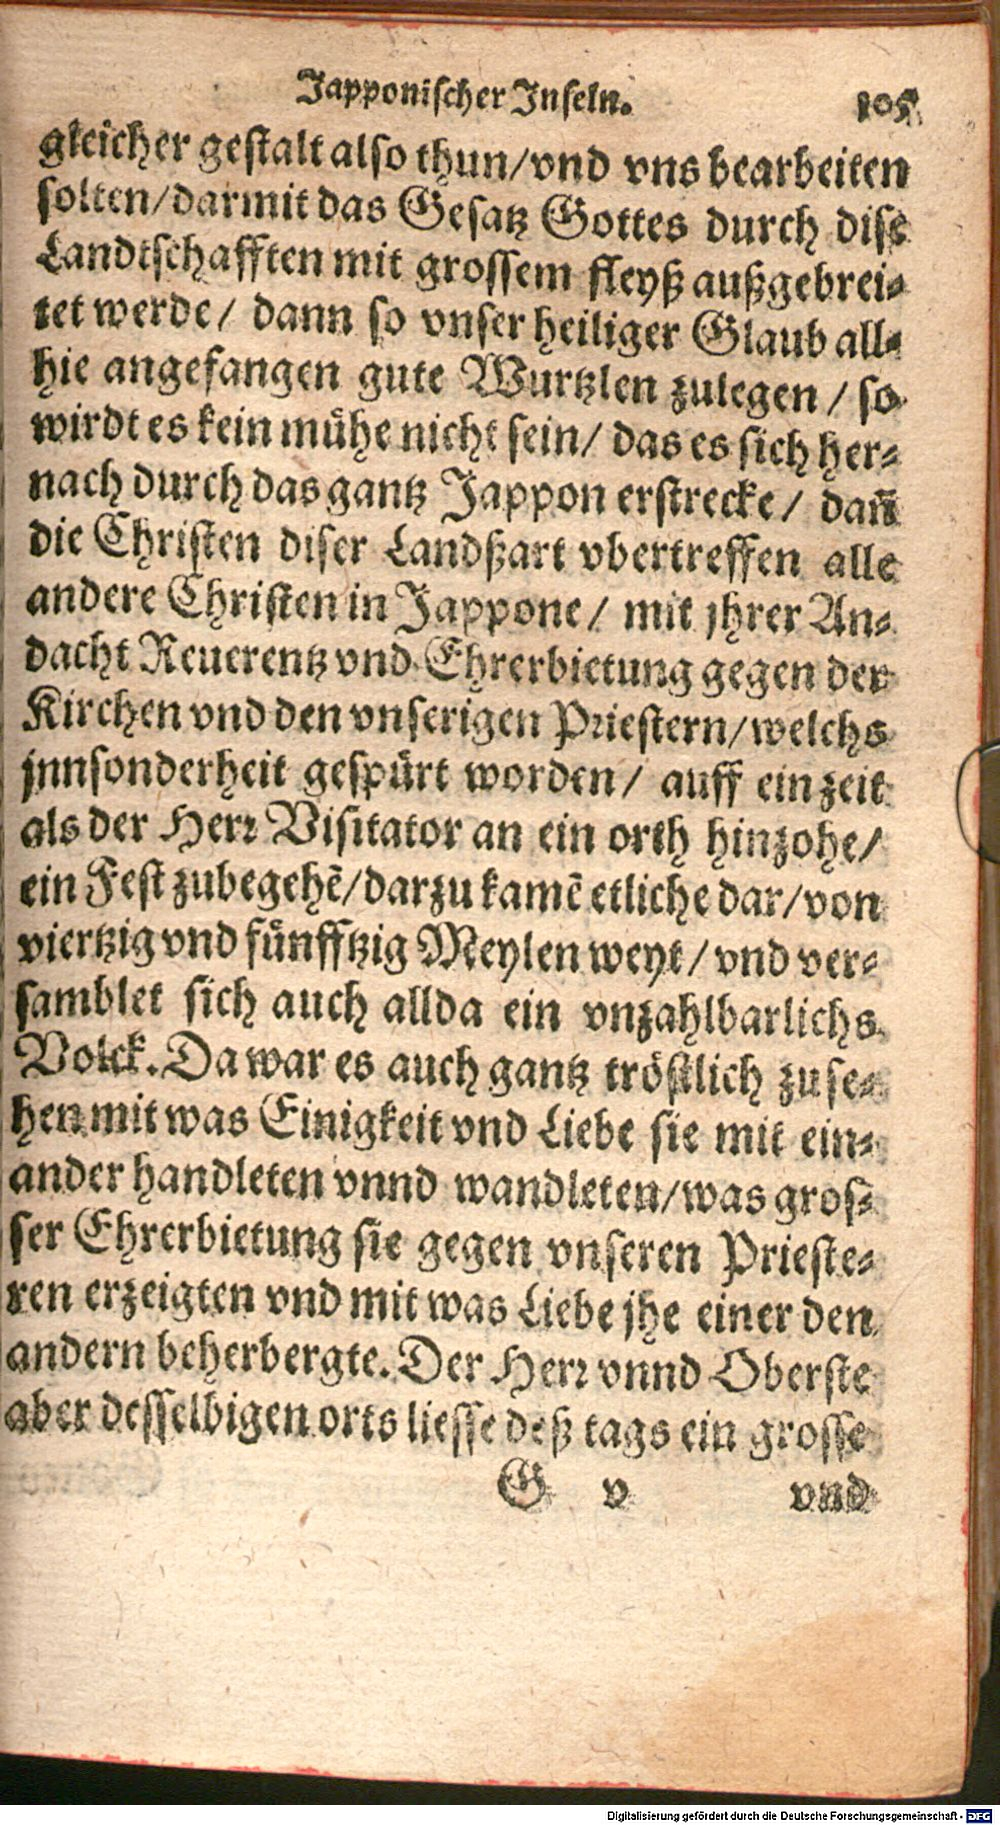 Japponischer Inseln. 105
gleicher gestalt also thun/vnd vns bearbeiten
solten/darmit das Gesatz Gottes durch dise
Landtschafften mit grossem fleyß außgebrei-
tet werde/ dann so vnser heiliger Glaub all-
hie angefangen gute Wurtzlen zulegen / so
wirdt es kein mühe nicht sein/ das es sich her-
nach durch das gantz Jappon erstrecke/ dañ
die Christen diser Landßart vbertreffen alle
andere Christen in Jappone/ mit jhrer An-
dacht Reuerentz vnd Ehrerbietung gegen der
Kirchen vnd den vnserigen Priestern/welchs
jnnsonderheit gespürt worden/ auff ein zeit
als der Herr Visitator an ein orth hinzohe/
ein Fest zubegehẽ/darzu kamẽ etliche dar/von
viertzig vnd fünfftzig Meylen weyt/ vnd ver-
samblet sich auch allda ein vnzahlbarlichs
Volck. Da war es auch gantz tröstlich zuse-
hen mit was Einigkeit vnd Liebe sie mit ein-
ander handleten vnnd wandleten/was gros-
ser Ehrerbietung sie gegen vnseren Prieste-
ren erzeigten vnd mit was Liebe jhe einer den
andern beherbergte. Der Herr vnnd Oberste
aber desselbigen orts liesse deß tags ein grosse
G v vnd
Digitalisierung gefördert durch die Deutsche Forschungsgemeinschaft - DFG